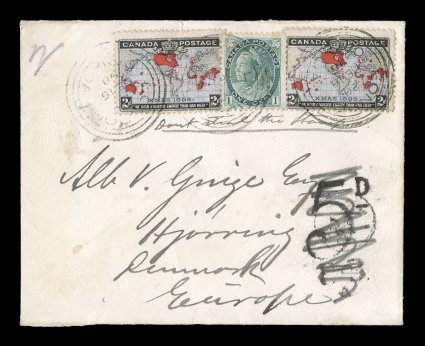 CANADA POSTAGE
XMAS 1898
2 WE HOLD A VASTER EMPIRE THAN HAS BEEN 2
CANADA POSTAGE
1 1
CANADA POSTAGE
XMAS 1898
2 WE HOLD A VASTER EMPIRE THAN HAS BEEN 2
Dont the
5D
Alb V. Esq
Hjörring
Denmark
Europe